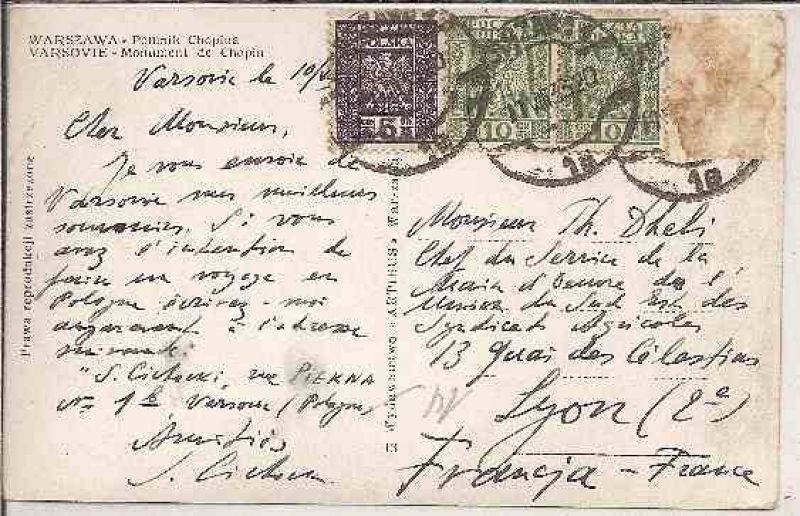 WARSZAWA - Pomnik Chopina
VARSOVIE - Monument de Chopin
Varsovie le 10/
Cher Monsieur,
Je vous envoie de
Varsovie mes meilleurs
souvenirs. Si vous
avez l'intention de
faire un voyage en
Pologne écrivez-moi
auparavant à l'adresse
suivante:
"S. Cichocki, rue PIEKNA
No 1 Varsovie (Pologne)
Amitiés
S. Cichocki
Prawa reprodukcji zastrzeżone
Wydawnictwo «ARTIBUS» Warsza
13
POLSKA
5
10
10
18
18
Monsieur Th. Dhebi
Chef du Service de la
Main d'Oeuvre de l'
Union du Sud Est des
Syndicats Agricoles
13 Quai des Célestins
Lyon (2e)
Francja - France